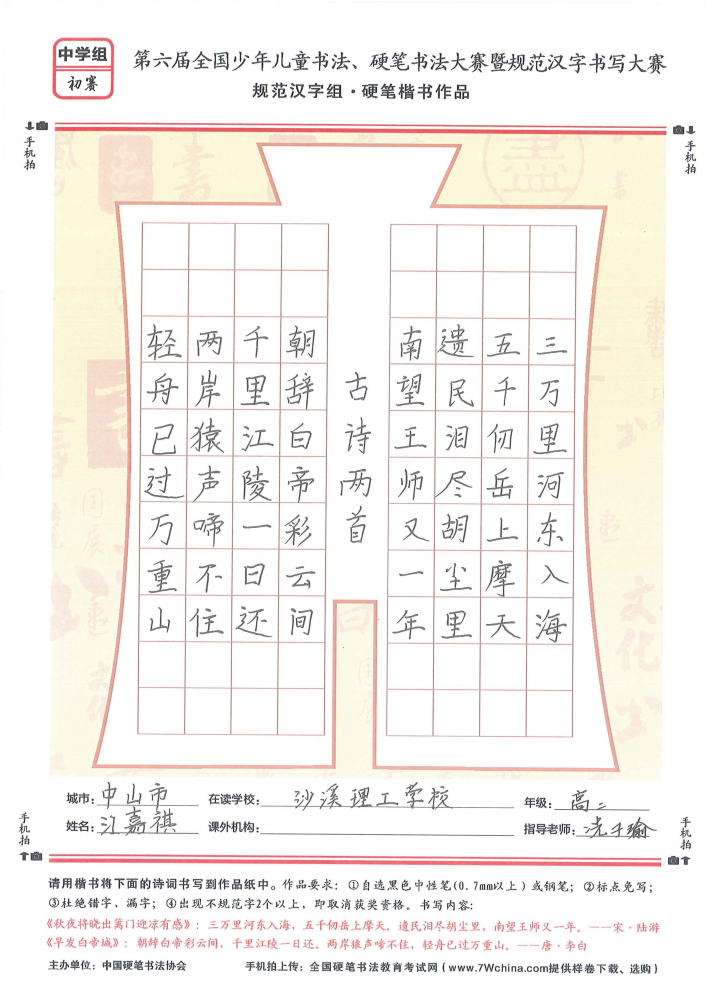 中学组
初赛
第六届全国少年儿童书法、硬笔书法大赛暨规范汉字书写大赛
规范汉字组·硬笔楷书作品
手机拍
手机拍
三万里河东入海
五千仞岳上摩天
遗民泪尽胡尘里
南望王师又一年
古诗两首
朝辞白帝彩云间
千里江陵一日还
两岸猿声啼不住
轻舟已过万重山
城市：中山市 在读学校：沙溪理工学校 年级：高二
姓名：江嘉祺 课外机构： 指导老师：冼子瑜
手机拍
手机拍
请用楷书将下面的诗词书写到作品纸中。作品要求：①自选黑色中性笔(0.7mm以上)或钢笔；②标点免写；
③杜绝错字、漏字；④出现不规范字2个以上，即取消获奖资格。书写内容：
《秋夜将晓出篱门迎凉有感》：三万里河东入海，五千仞岳上摩天。遗民泪尽胡尘里，南望王师又一年。——宋·陆游
《早发白帝城》：朝辞白帝彩云间，千里江陵一日还。两岸猿声啼不住，轻舟已过万重山。——唐·李白
主办单位：中国硬笔书法协会 手机拍上传：全国硬笔书法教育考试网（www.7Wchina.com提供样卷下载、选购）